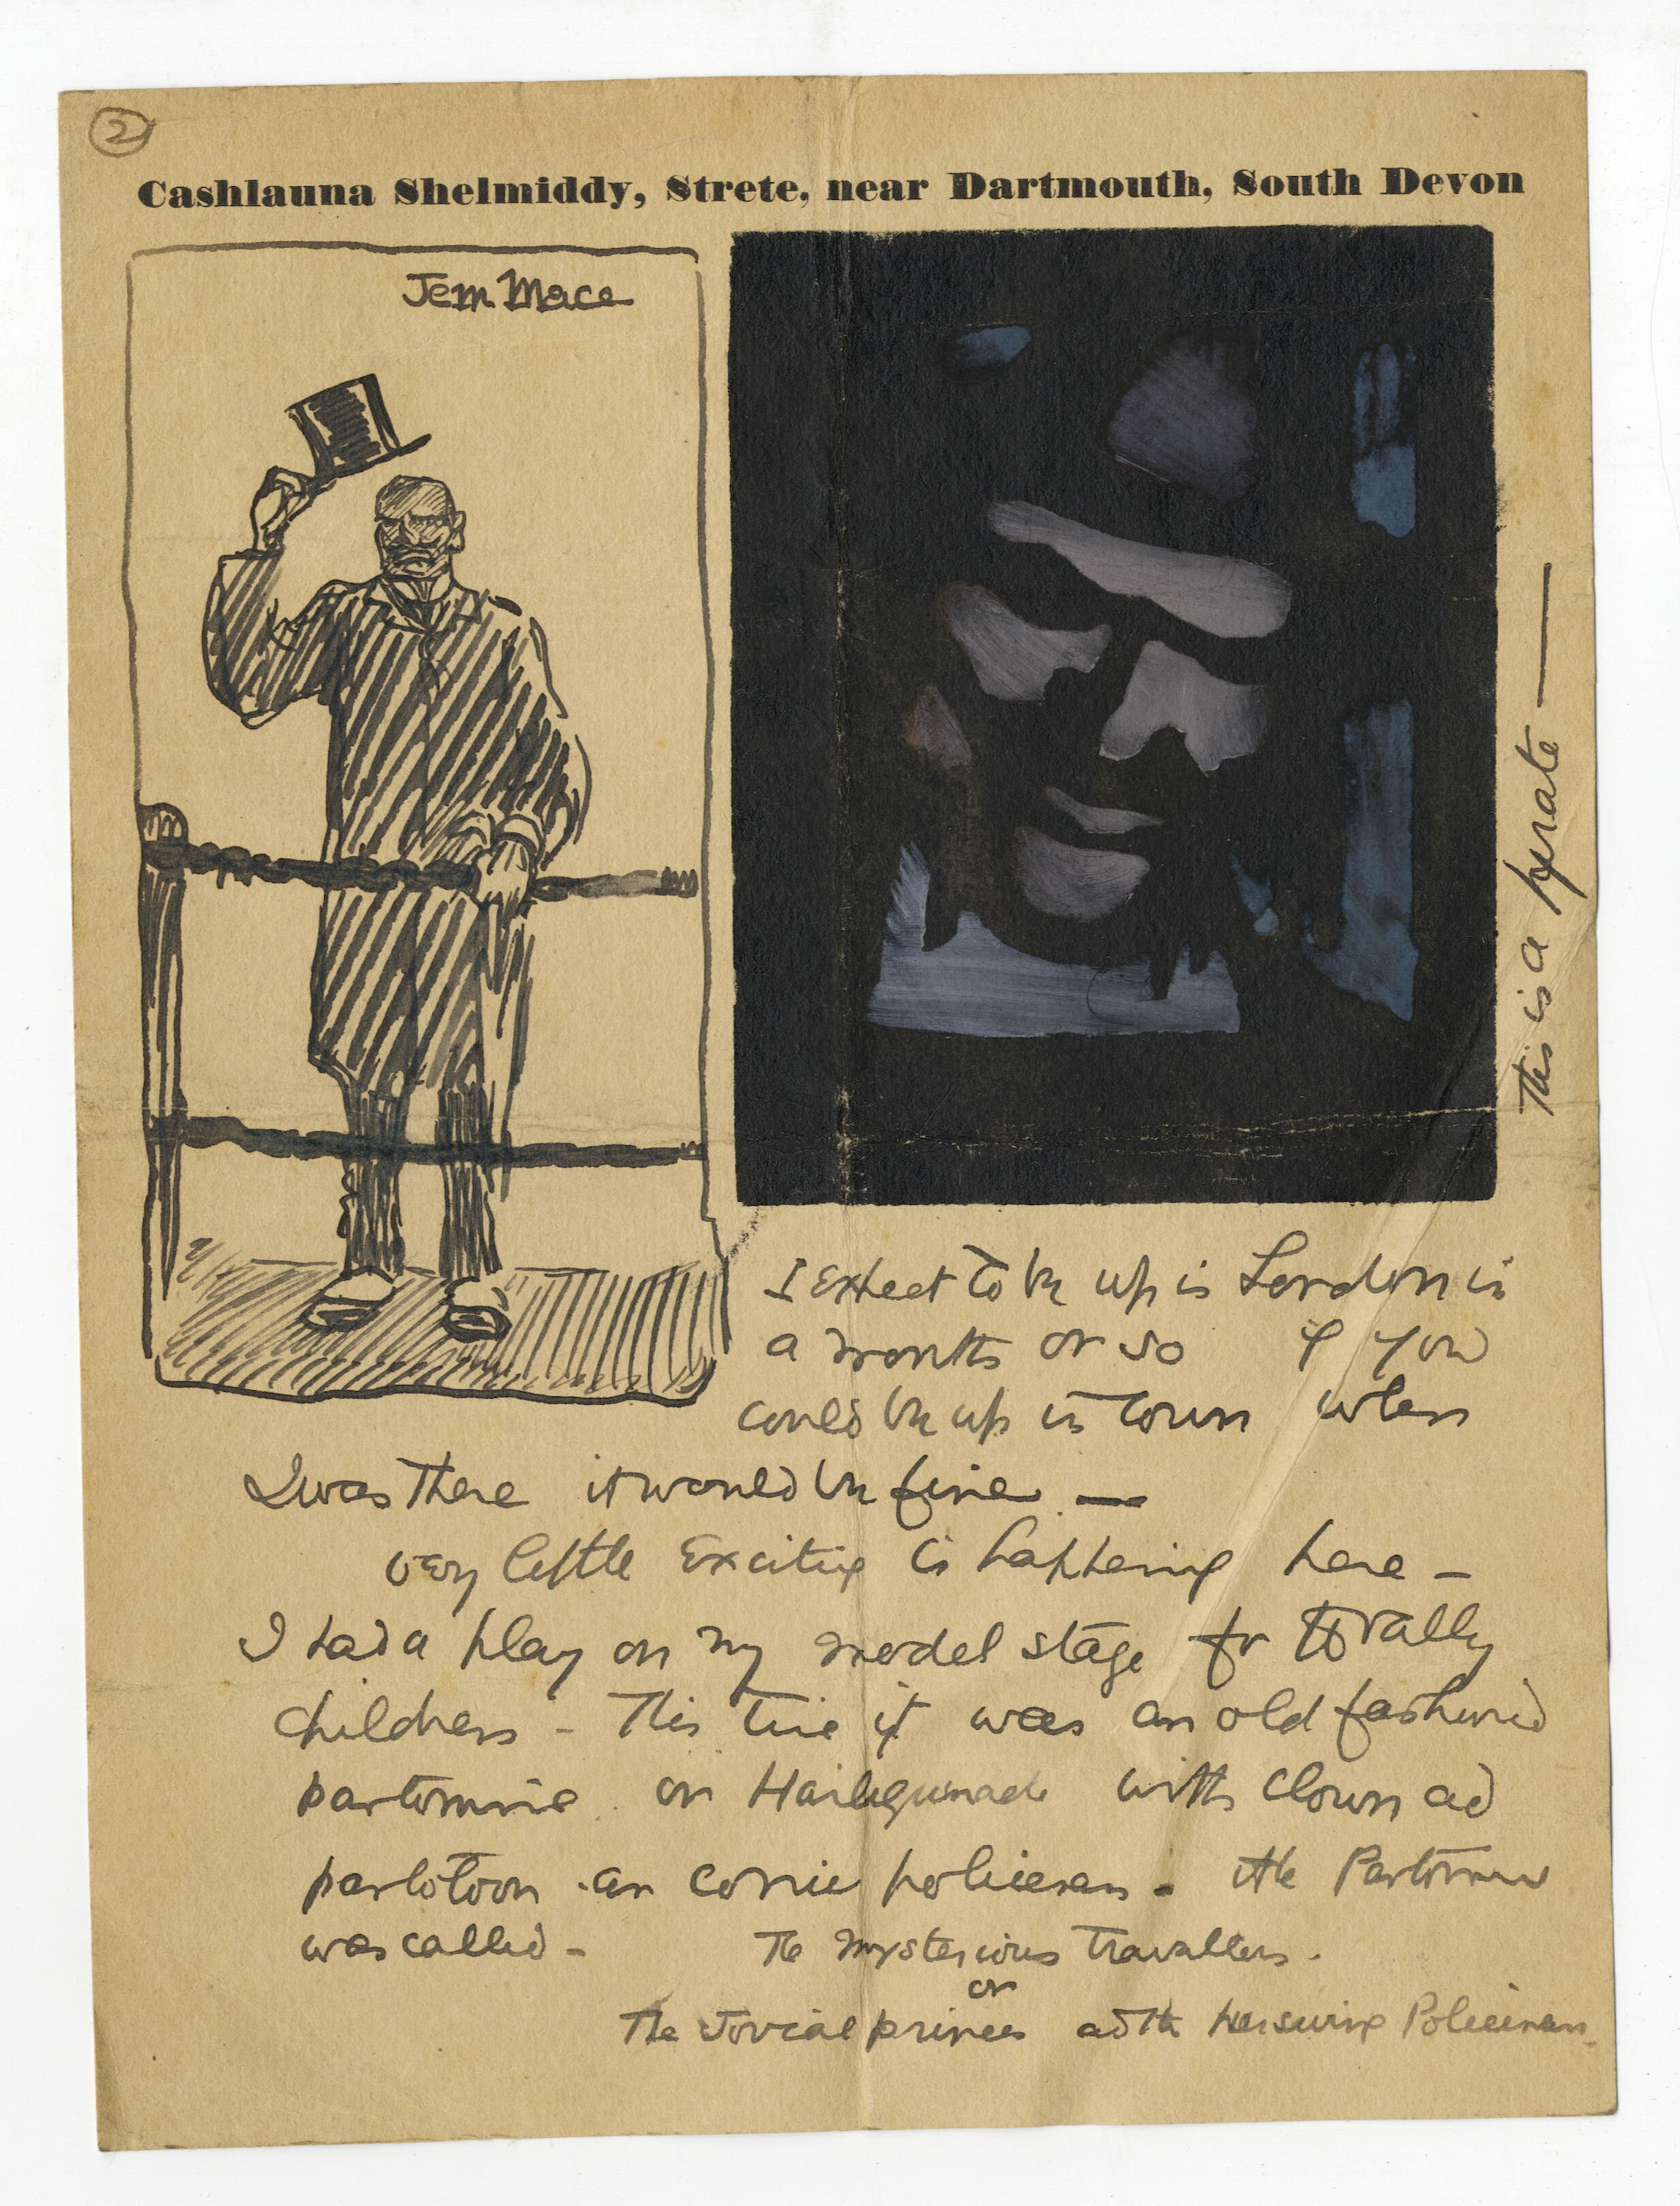 2
Cashlauna Shelmiddy, Strete, near Dartmouth, South Devon
Jem Mace
This is a pirate —
I expect to be up in London in
a month or so if you
could be up in town when
I was there it would be fine —
very little exciting is happening here —
I had a play on my model stage for
children - This time it was an old fashioned
pantomime or Harlequinade with clown ad
pantaloon an comic policeman - the Pantomime
was called -
The mysterious Travellers.
or
The Jovial princes ad the Policeman